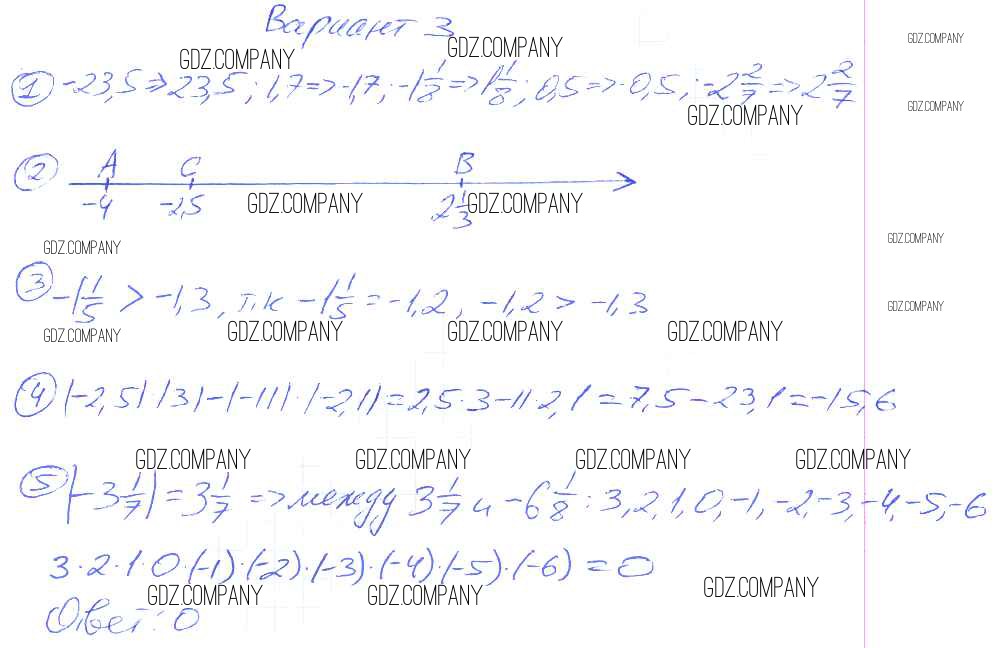 Вариант 3
GDZ.COMPANY GDZ.COMPANY GDZ.COMPANY
① -23,5 => 23,5 ; 1,7 => -1,7 ; -1 1/8 => 1 1/8 ; 0,5 => -0,5 ; -2 2/7 => 2 2/7
GDZ.COMPANY GDZ.COMPANY
② A C B
-4 -2,5 2 1/3
GDZ.COMPANY GDZ.COMPANY
GDZ.COMPANY GDZ.COMPANY
③ -1 1/5 > -1,3, т.к -1 1/5 = -1,2, -1,2 > -1,3
GDZ.COMPANY
GDZ.COMPANY GDZ.COMPANY GDZ.COMPANY GDZ.COMPANY
④ |-2,5| · |3| - |-11| · |-2,1| = 2,5 · 3 - 11 · 2,1 = 7,5 - 23,1 = -15,6
GDZ.COMPANY GDZ.COMPANY GDZ.COMPANY GDZ.COMPANY
⑤ |-3 1/7| = 3 1/7 => между 3 1/7 и -6 1/8 : 3, 2, 1, 0, -1, -2, -3, -4, -5, -6
3 · 2 · 1 · 0 · (-1) · (-2) · (-3) · (-4) · (-5) · (-6) = 0
GDZ.COMPANY GDZ.COMPANY GDZ.COMPANY
Ответ: 0